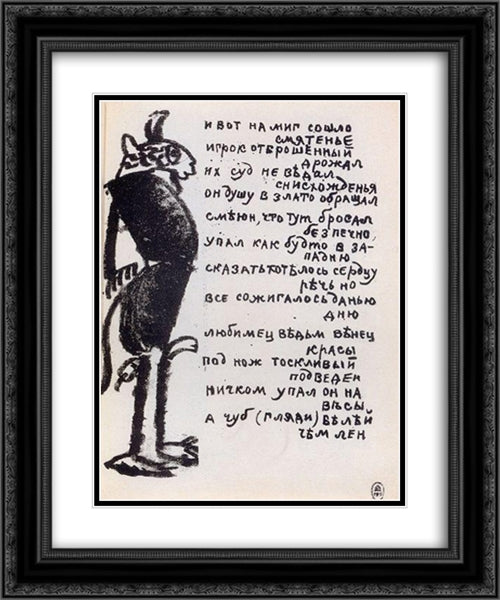 И ВОТ НА МИГ СОШЛО
СМЯТЕНЬЕ
ИГРОК ОТБРОШЕННЫЙ
ДРОЖАЛ
ИХ СУД НЕ ВѢДАЛ
СНИСХОЖДЕНЬЯ
ОН ДУШУ В ЗЛАТО ОБРАЩАЛ
ЧТО ТУТ БРОСАЛ
БЕЗПЕЧНО,
УПАЛ КАК БУДТО В ЗА-
ПАДНЮ
СКАЗАТЬ ХОТѢЛОСЬ СЕРДЦУ
РѢЧЬ НО
ВСЕ СОЖИГАЛОСЬ ДАНЬЮ
ДНЮ
ЛЮБИМЕЦ ВѢДЬМ ВѢНЕЦ
КРАСЫ
ПОД НОЖ ТОСКЛИВЫЙ
ПОДВЕДЕН
НИЧКОМ УПАЛ ОН НА
ВѢСЫ
А ЧУБ (ГЛЯДИ) БѢЛѢЙ
ЧѢМ ЛЕН